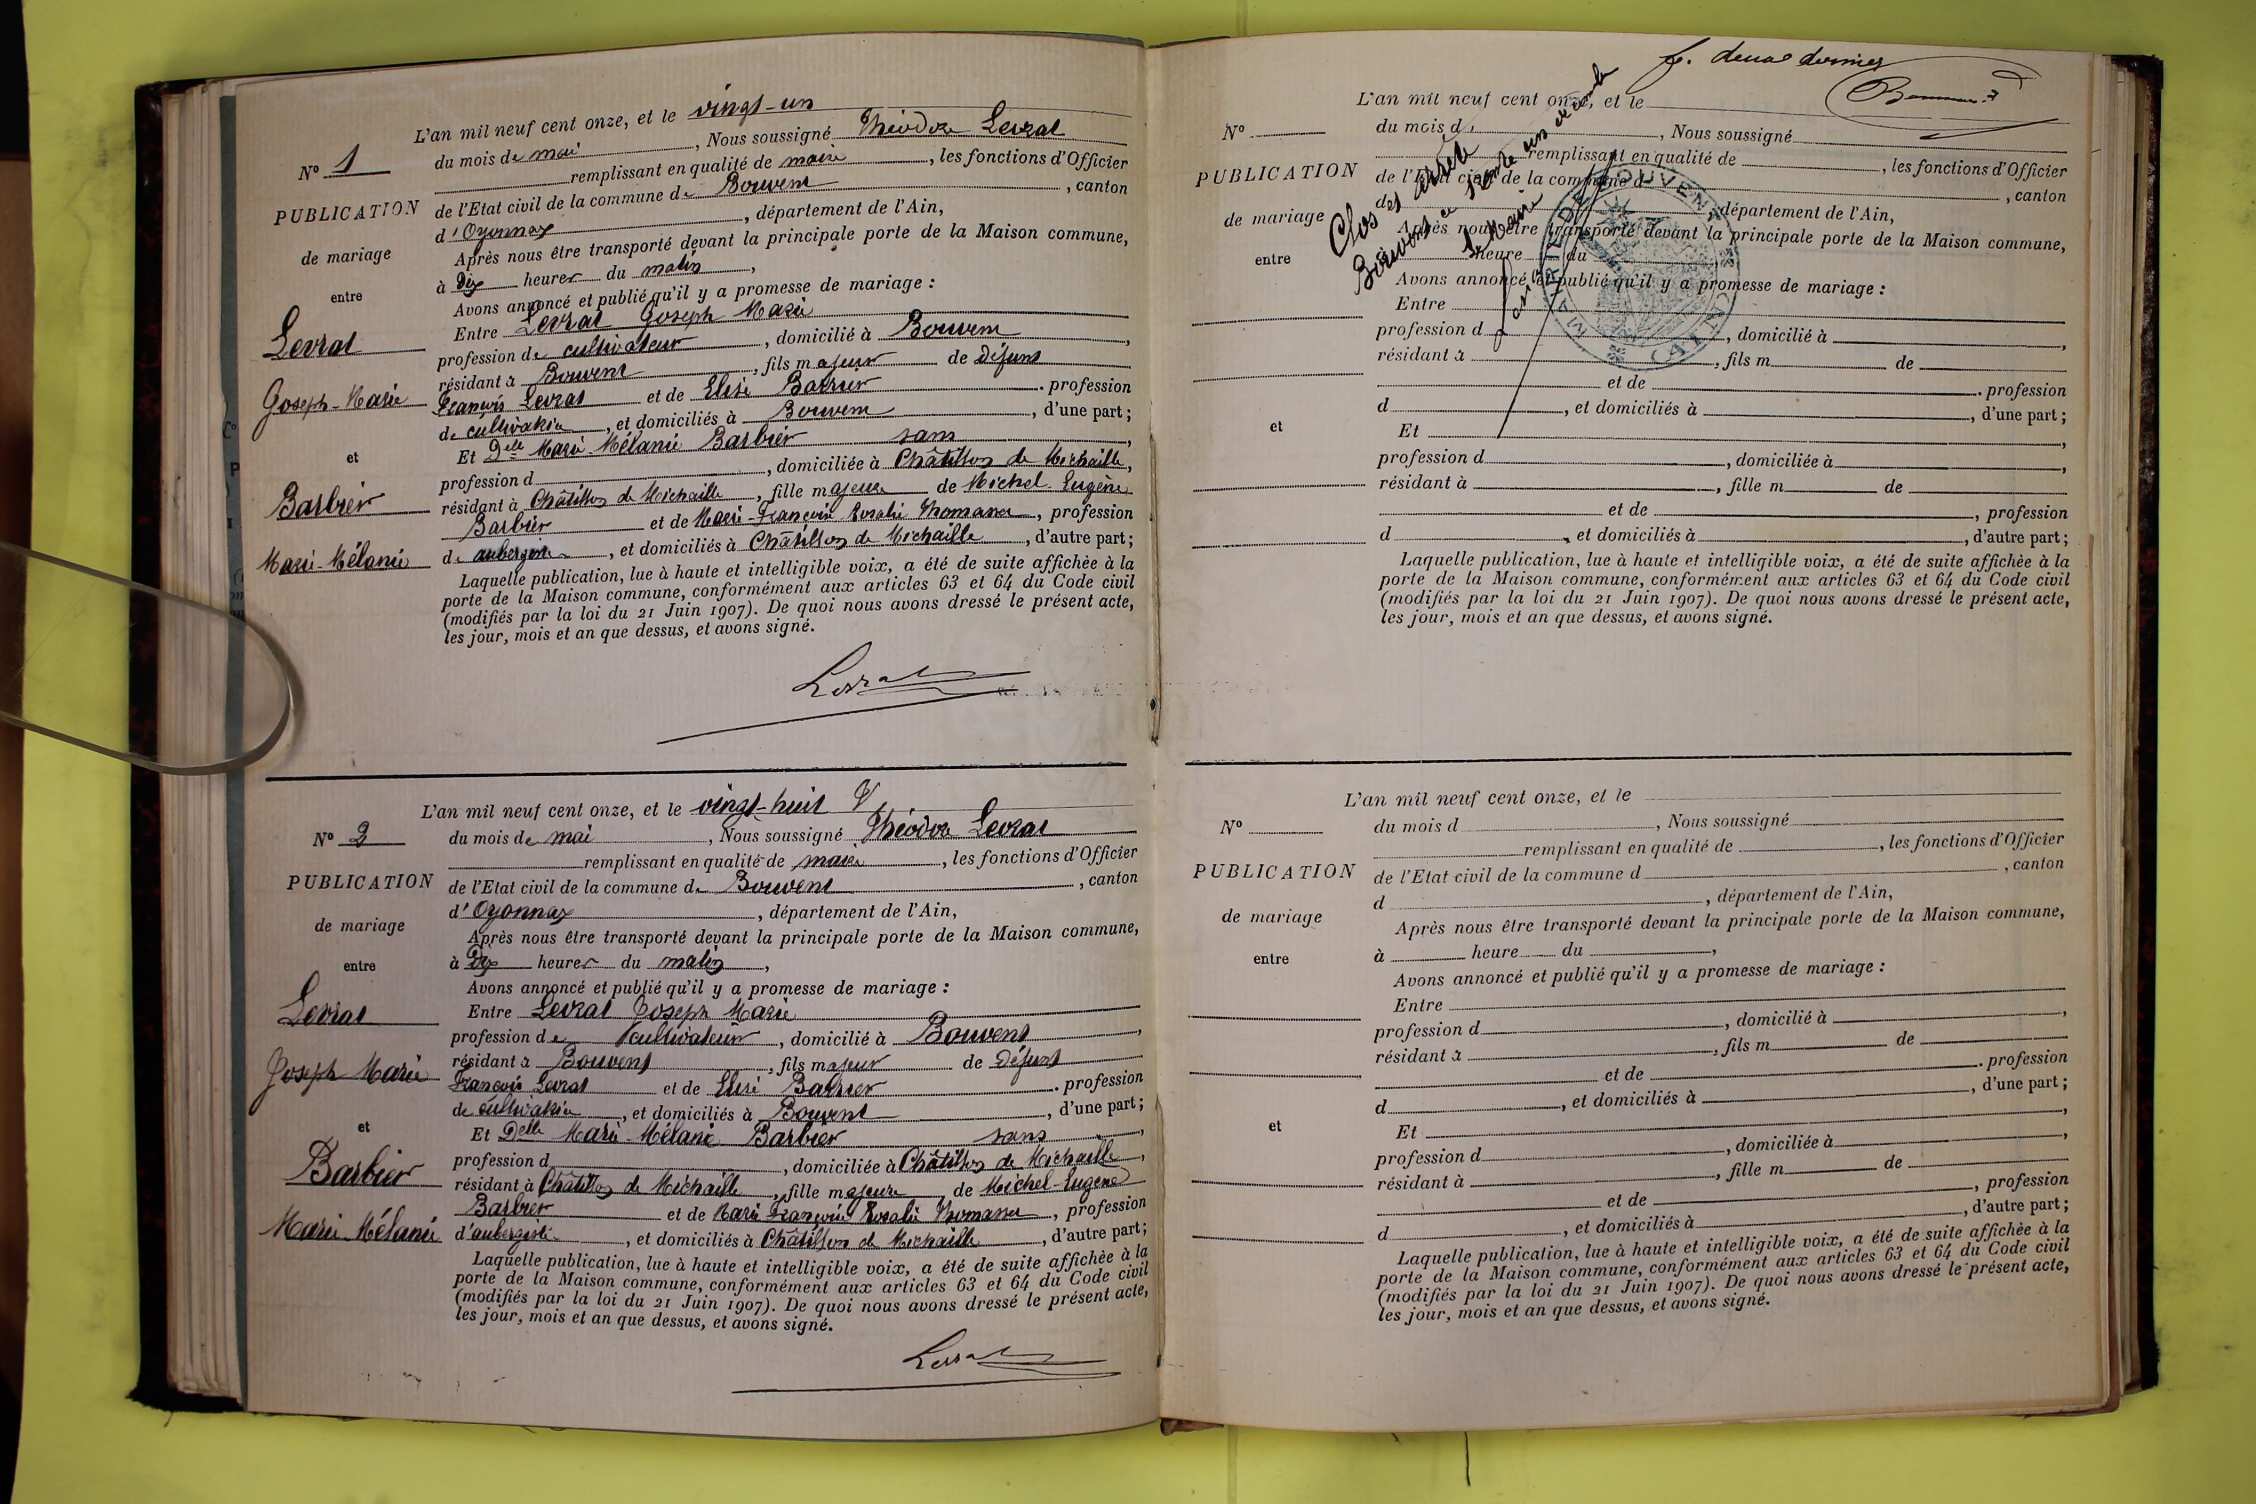 L'an mil neuf cent onze, et le vingt-un
N° 1
du mois de mai, Nous soussigné Théodore Levrat
remplissant en qualité de maire, les fonctions d'Officier
PUBLICATION
de l'Etat civil de la commune de Bouvent, canton
d'Oyonnax, département de l'Ain,
de mariage
Après nous être transporté devant la principale porte de la Maison commune,
à dix heures du matin,
entre
Avons annoncé et publié qu'il y a promesse de mariage :
Levrat
Entre Levrat Joseph Marie
profession de cultivateur, domicilié à Bouvent,
résidant à Bouvent, fils majeur de défunt
Joseph-Marie
François Levrat et de Elise Barrier . profession
de cultivateur, et domiciliés à Bouvent, d'une part ;
et
Et Delle Marie-Mélanie Barbier sans,
profession d, domiciliée à Châtillon de Michaille,
Barbier
résidant à Châtillon de Michaille, fille majeure de Michel Eugène
Barbier et de Marie-Françoise Rosalie Thomasset, profession
Marie-Mélanie
de aubergiste, et domiciliés à Châtillon de Michaille, d'autre part ;
Laquelle publication, lue à haute et intelligible voix, a été de suite affichèe à la
porte de la Maison commune, conformément aux articles 63 et 64 du Code civil
(modifiés par la loi du 21 Juin 1907). De quoi nous avons dressé le présent acte,
les jour, mois et an que dessus, et avons signé.
Levrat
L'an mil neuf cent onze, et le vingt-huit
N° 2
du mois de mai, Nous soussigné Théodore Levrat
remplissant en qualité de maire, les fonctions d'Officier
PUBLICATION
de l'Etat civil de la commune de Bouvent, canton
d'Oyonnax, département de l'Ain,
de mariage
Après nous être transporté devant la principale porte de la Maison commune,
entre
à dix heures du matin,
Avons annoncé et publié qu'il y a promesse de mariage :
Levrat
Entre Levrat Joseph Marie
profession de cultivateur, domicilié à Bouvent,
Joseph Marie
résidant à Bouvent, fils majeur de défunt
François Levrat et de Elise Barrier . profession
de cultivateur, et domiciliés à Bouvent, d'une part ;
et
Et Delle Marie-Mélanie Barbier sans,
profession d, domiciliée à Châtillon de Michaille,
Barbier
résidant à Châtillon de Michaille, fille majeure de Michel-Eugène
Barbier et de Marie Françoise Rosalie Thomasset, profession
Marie-Mélanie
d'aubergiste, et domiciliés à Châtillon de Michaille, d'autre part ;
Laquelle publication, lue à haute et intelligible voix, a été de suite affichèe à la
porte de la Maison commune, conformément aux articles 63 et 64 du Code civil
(modifiés par la loi du 21 Juin 1907). De quoi nous avons dressé le présent acte,
les jour, mois et an que dessus, et avons signé.
Levrat
deux dernier
L'an mil neuf cent onze, et le
N°
du mois d, Nous soussigné
remplissant en qualité de, les fonctions d'Officier
PUBLICATION
de l'Etat civil de la commune d, canton
d, département de l'Ain,
de mariage
Après nous être transporté devant la principale porte de la Maison commune,
entre
heure du
Avons annoncé et publié qu'il y a promesse de mariage :
Clos et arrêté
Bouvent le trente un décembre
Le Maire
MAIRIE DE BOUVENT
Entre
profession d, domicilié à,
résidant à, fils m de
et de . profession
d, et domiciliés à, d'une part ;
et
Et,
profession d, domiciliée à,
résidant à, fille m de
et de, profession
d, et domiciliés à, d'autre part ;
Laquelle publication, lue à haute et intelligible voix, a été de suite affichèe à la
porte de la Maison commune, conformément aux articles 63 et 64 du Code civil
(modifiés par la loi du 21 Juin 1907). De quoi nous avons dressé le présent acte,
les jour, mois et an que dessus, et avons signé.
L'an mil neuf cent onze, et le
N°
du mois d, Nous soussigné
remplissant en qualité de, les fonctions d'Officier
PUBLICATION
de l'Etat civil de la commune d, canton
d, département de l'Ain,
de mariage
Après nous être transporté devant la principale porte de la Maison commune,
entre
à heure du,
Avons annoncé et publié qu'il y a promesse de mariage :
Entre
profession d, domicilié à,
résidant à, fils m de
et de . profession
d, et domiciliés à, d'une part ;
et
Et,
profession d, domiciliée à,
résidant à, fille m de
et de, profession
d, et domiciliés à, d'autre part ;
Laquelle publication, lue à haute et intelligible voix, a été de suite affichèe à la
porte de la Maison commune, conformément aux articles 63 et 64 du Code civil
(modifiés par la loi du 21 Juin 1907). De quoi nous avons dressé le présent acte,
les jour, mois et an que dessus, et avons signé.